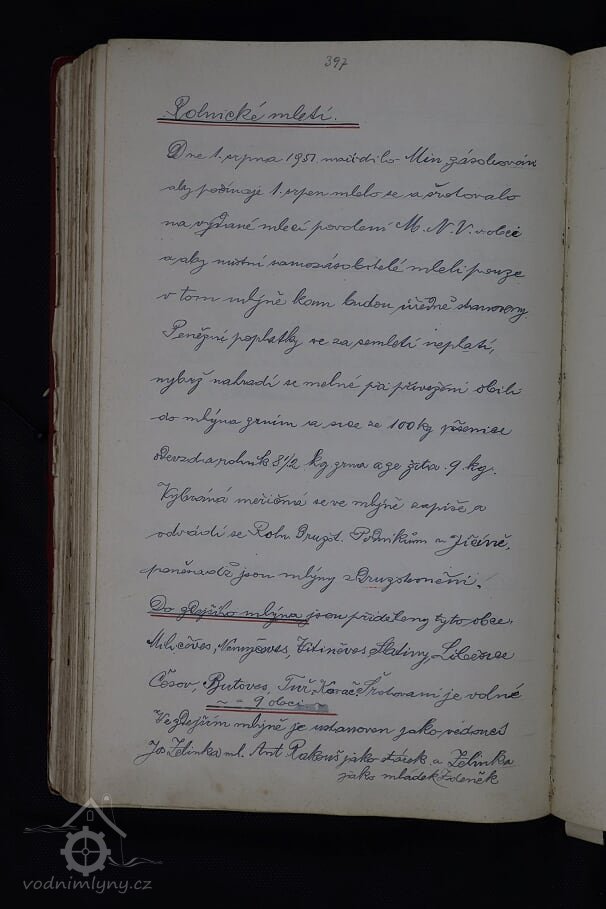 397
Rolnické mletí.
Dne 1. srpna 1951. nařídilo Min. zásobování
aby počínaje 1. srpen mlelo se a šrotovalo
na vydané mlecí povolení M. N. V. v obci
a aby místní samozásobitelé mleli pouze
v tom mlýně kam budou úředně stanoveny
Peněžní poplatky se za semletí neplatí,
nybrž nahradí se melné při přivezení obilí
do mlýna zrním a sice ze 100 kg pšenice
odevzdá rolník 8 1/2 kg zrna a ze žita 9 kg.
Vybraná měřičná se ve mlýně zapíše a
odvádí se Roln. Družst. Podnikům v Jičíně,
poněvadž jsou mlýny z Družstevnění.
Do zdejšího mlýna jsou přiděleny tyto obce,
Milíčeves, Nemyčeves, Vitiněves, Slatiny,
Češov, Butoves, Tuř, Šrotovaní je volné
~ ~ 9 obcí ~
Ve zdejším mlýně je ustanoven jako vedoucí
Jos Zelinka ml. Ant. Rakouš jako stárek a Zelinka
jako mládek Zdeněk
vodnimlyny.cz